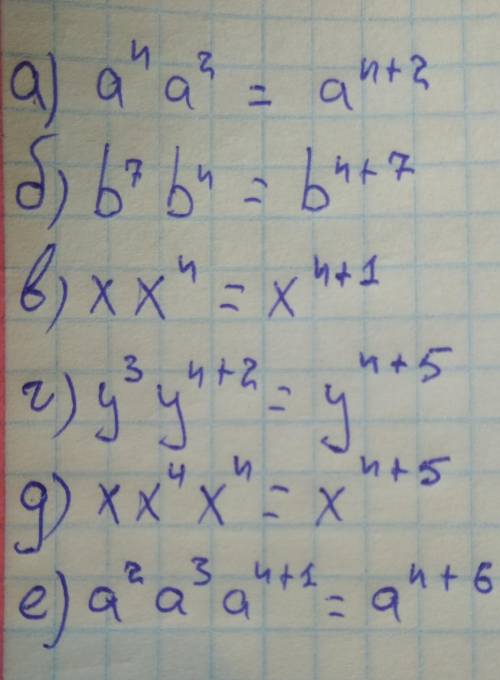 а) aⁿ a² = aⁿ⁺²
б) b⁷ bⁿ = bⁿ⁺⁷
в) x xⁿ = xⁿ⁺¹
г) y³ yⁿ⁺² = yⁿ⁺⁵
д) x x⁴ xⁿ = xⁿ⁺⁵
е) a² a³ aⁿ⁺¹ = aⁿ⁺⁶